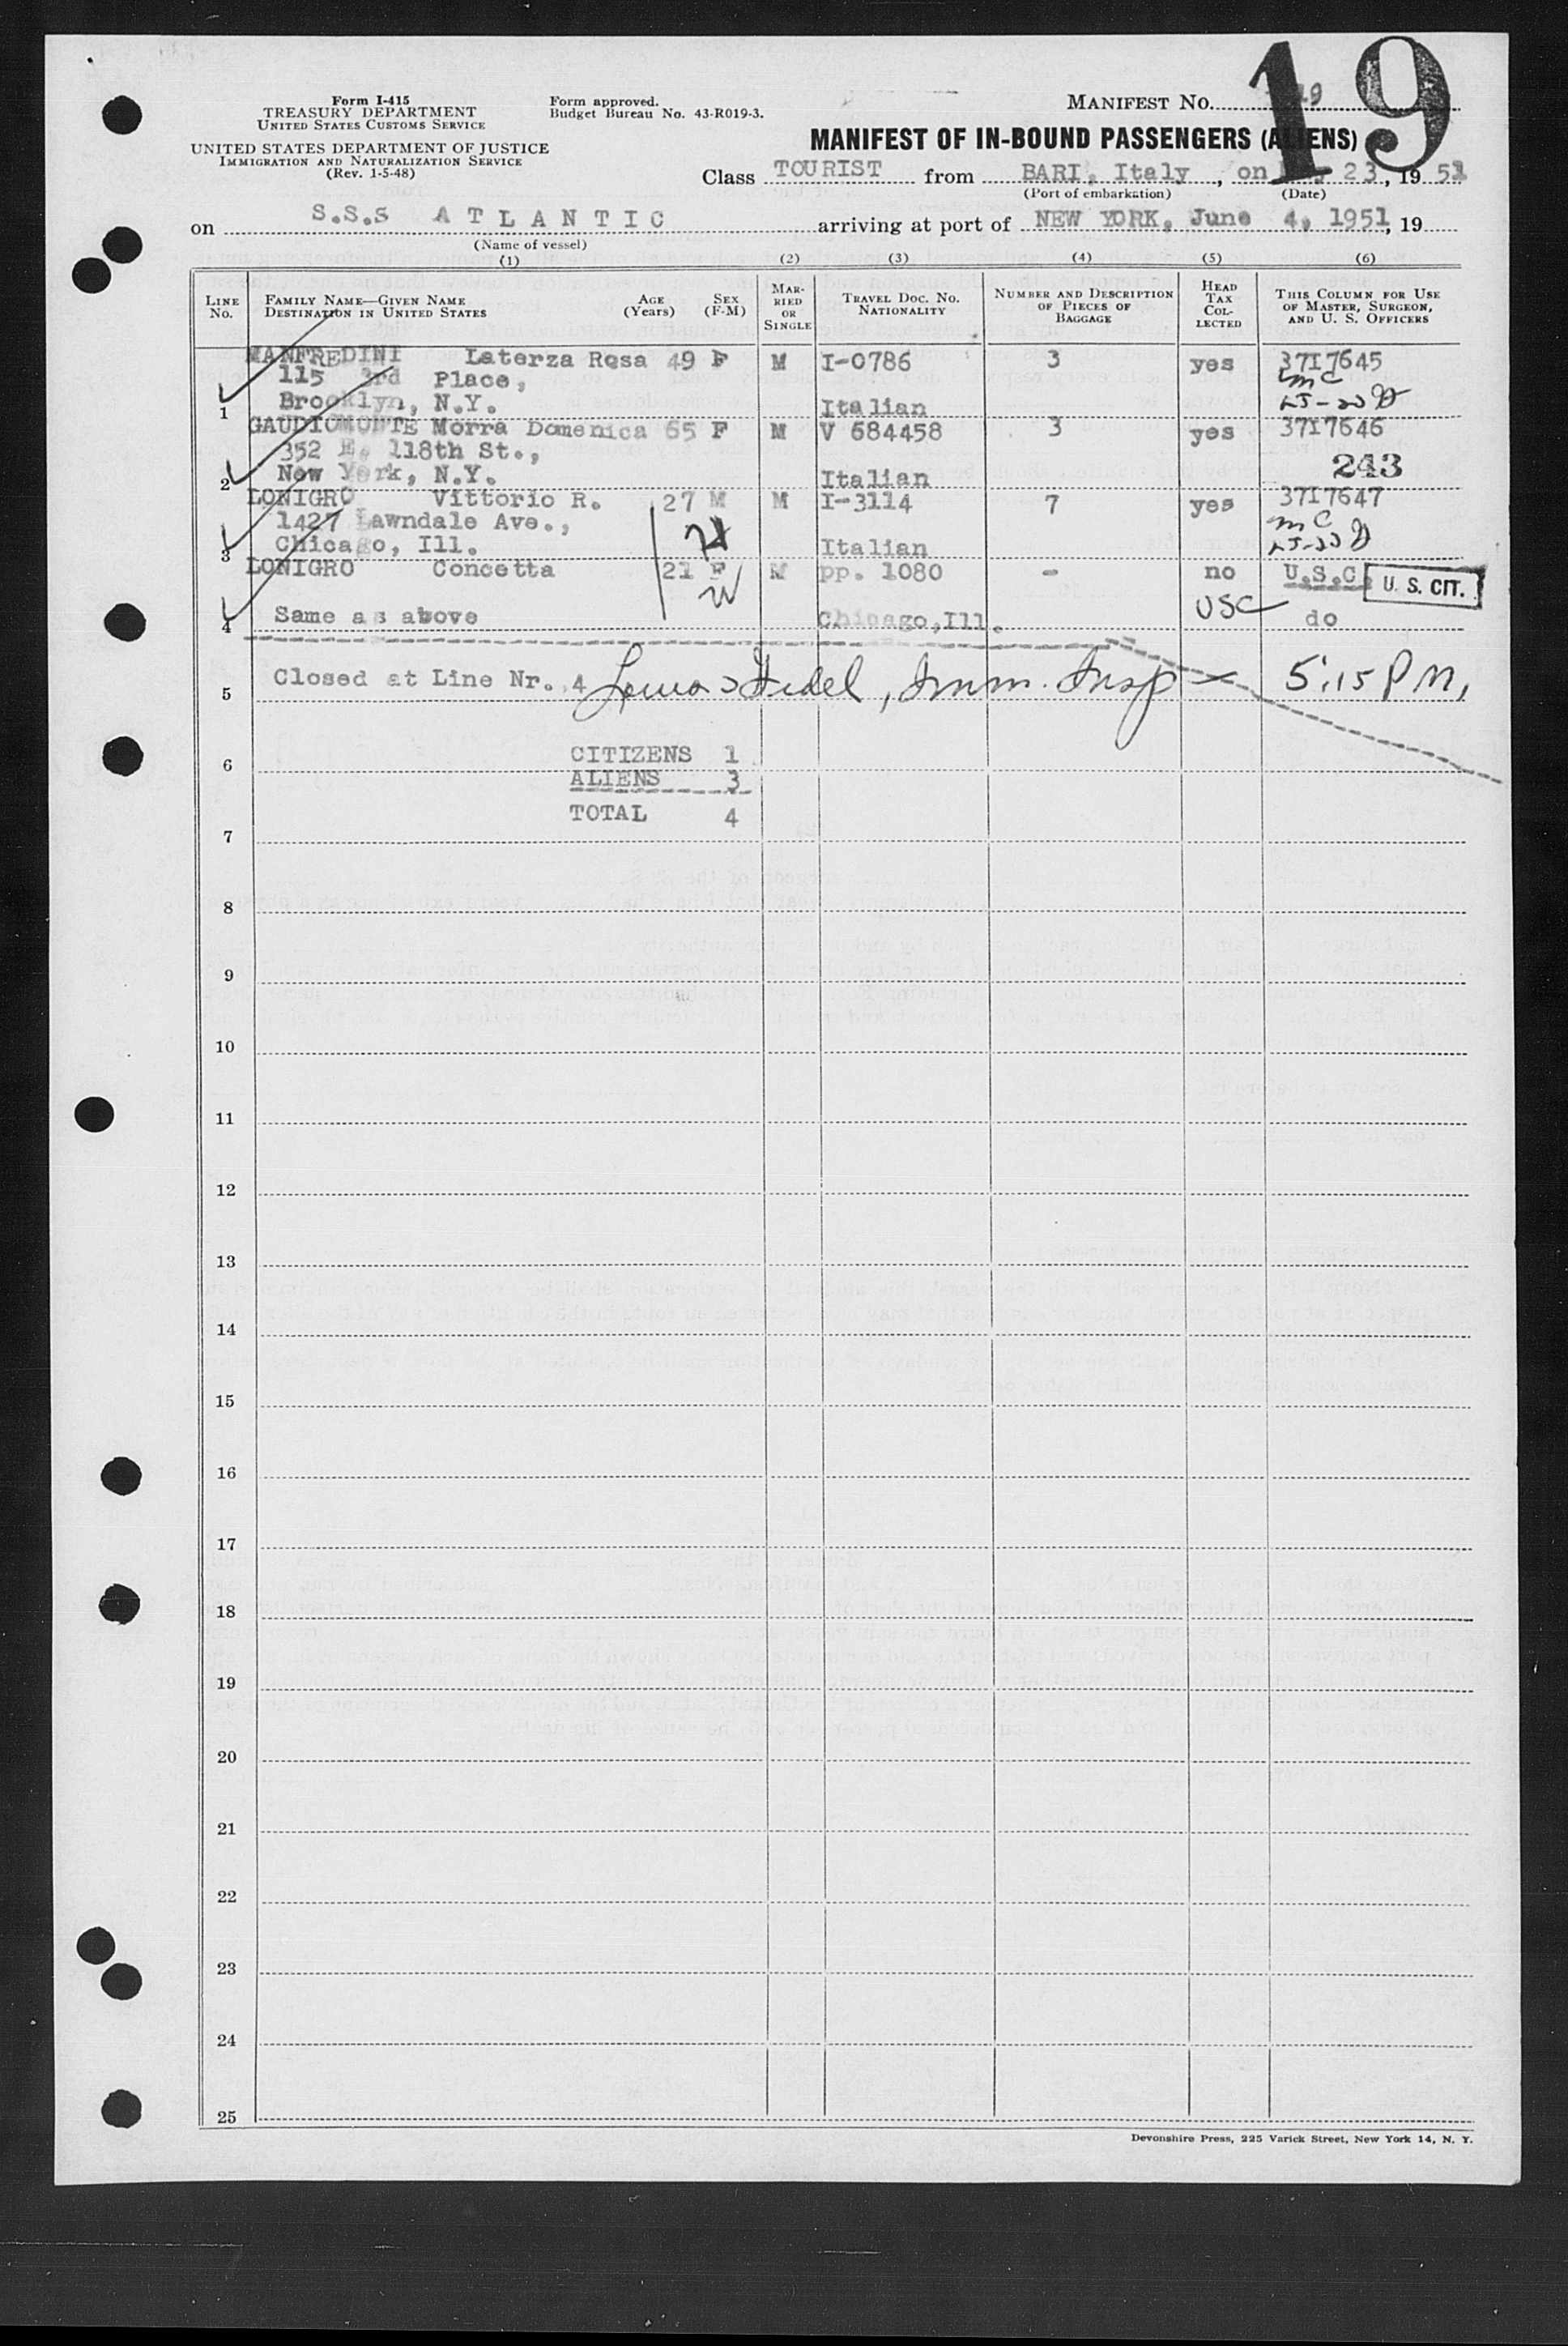 19
Form I-415
TREASURY DEPARTMENT
UNITED STATES CUSTOMS SERVICE
UNITED STATES DEPARTMENT OF JUSTICE
IMMIGRATION AND NATURALIZATION SERVICE
(Rev. 1-5-48)
Form approved.
Budget Bureau No. 43-R019-3.
MANIFEST NO. 19
MANIFEST OF IN-BOUND PASSENGERS (ALIENS)
Class TOURIST from BARI, Italy, on 23, 19 51
(Port of embarkation) (Date)
on S.S.S ATLANTIC arriving at port of NEW YORK, June 4, 1951, 19
(Name of vessel)
(1) (2) (3) (4) (5) (6)
LINE No. FAMILY NAME—GIVEN NAME DESTINATION IN UNITED STATES AGE (Years) SEX (F-M) MARRIED OR SINGLE TRAVEL DOC. NO. NATIONALITY NUMBER AND DESCRIPTION OF PIECES OF BAGGAGE HEAD TAX COLLECTED THIS COLUMN FOR USE OF MASTER, SURGEON, AND U. S. OFFICERS
MANFREDINI Laterza Rosa 49 F M I-0786 3 yes 37I7645
115 3rd Place, mc
1 Brooklyn, N.Y. Italian
GAUDIOMONTE Morra Domenica 65 F M V 684458 3 yes 37I7646
352 E. 118th St., 243
2 New York, N.Y. Italian
LONIGRO Vittorio R. 27 M M I-3114 7 yes 37I7647
1427 Lawndale Ave., mc
3 Chicago, Ill. Italian
LONIGRO Concetta 21 F M pp. 1080 - no U.S.C. U. S. CIT.
USC
4 Same as above Chicago, Ill. do
5 Closed at Line Nr. 4 Imm. Insp 5:15 PM,
CITIZENS 1
6
ALIENS 3
TOTAL 4
7
8
9
10
11
12
13
14
15
16
17
18
19
20
21
22
23
24
25
Devonshire Press, 225 Varick Street, New York 14, N. Y.